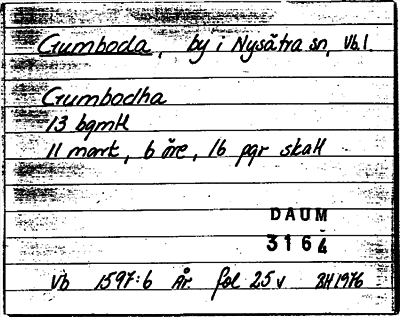 Gumboda, by i Nysätra sn, Vb.l.
Gumbodha
13 bgmtl
11 mark, 6 öre, 16 pgr skatt
DAUM
3164
Vb 1597:6 År fol 25v BH 1976